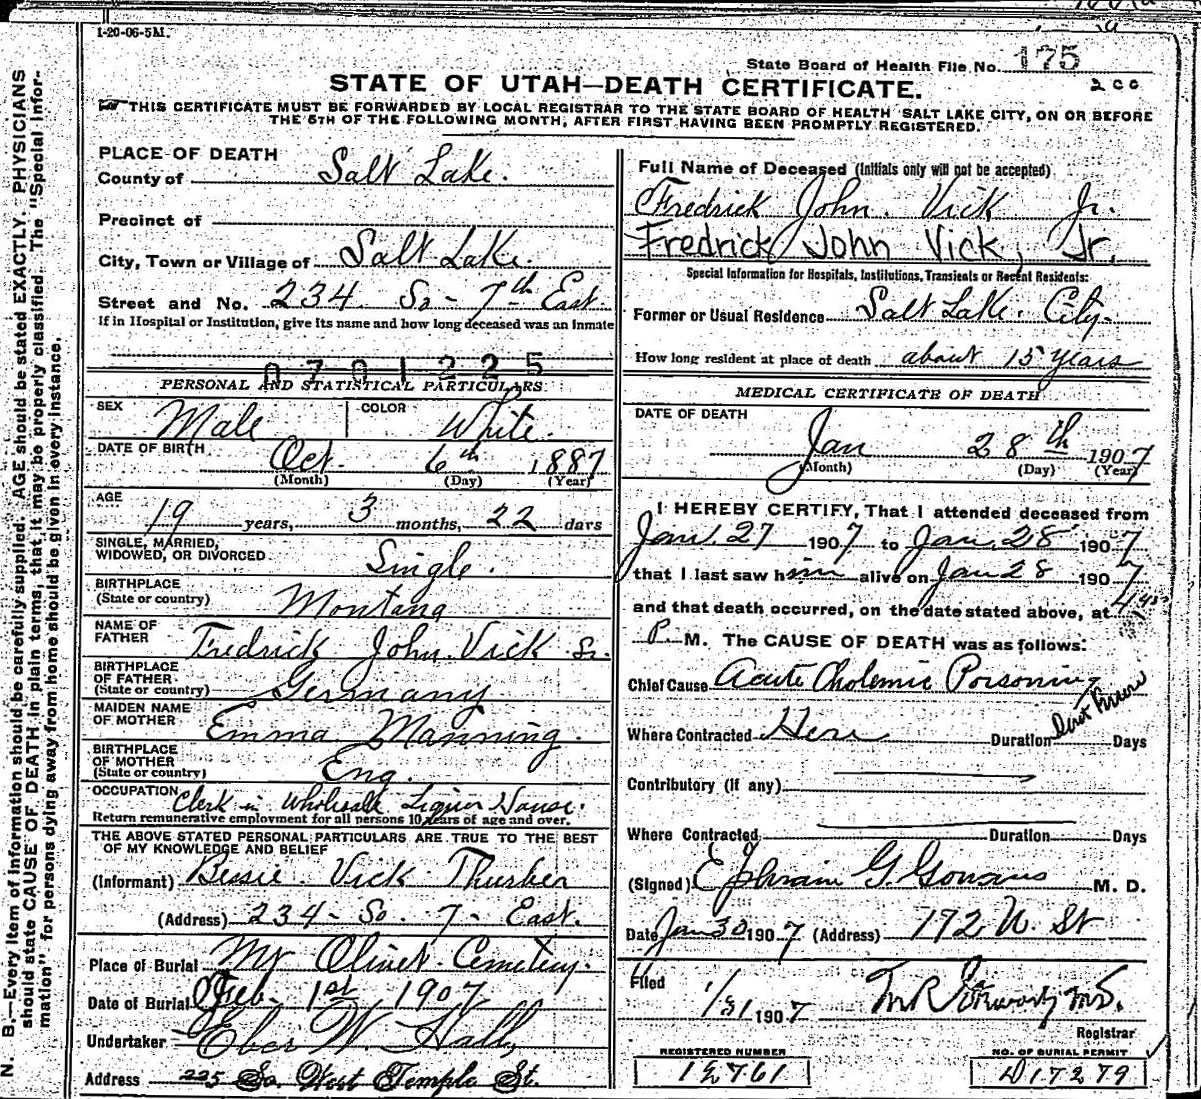 1-20-06-5M.
State Board of Health File No. 175
200
STATE OF UTAH—DEATH CERTIFICATE.
THIS CERTIFICATE MUST BE FORWARDED BY LOCAL REGISTRAR TO THE STATE BOARD OF HEALTH SALT LAKE CITY, ON OR BEFORE
THE 5TH OF THE FOLLOWING MONTH, AFTER FIRST HAVING BEEN PROMPTLY REGISTERED.
N. B.—Every item of information should be carefully supplied. AGE should be stated EXACTLY. PHYSICIANS
should state CAUSE OF DEATH in plain terms, that it may be properly classified. The "Special Infor-
mation" for persons dying away from home should be given in every instance.
PLACE OF DEATH
County of Salt Lake.
Precinct of
City, Town or Village of Salt Lake.
Street and No. 234 So - 7th East.
If in Hospital or Institution, give its name and how long deceased was an inmate
0701225
PERSONAL AND STATISTICAL PARTICULARS:
SEX Male COLOR White.
DATE OF BIRTH Oct. 6th 1887
(Month) (Day) (Year)
AGE 19 years, 3 months, 22 days
SINGLE, MARRIED,
WIDOWED, OR DIVORCED Single.
BIRTHPLACE
(State or country) Montana
NAME OF
FATHER Fredrick John Vick Sr.
BIRTHPLACE
OF FATHER
(State or country) Germany
MAIDEN NAME
OF MOTHER Emma Manning.
BIRTHPLACE
OF MOTHER
(State or country) Eng.
OCCUPATION Clerk in Wholesale Liquor House.
Return remunerative employment for all persons 10 years of age and over.
THE ABOVE STATED PERSONAL PARTICULARS ARE TRUE TO THE BEST
OF MY KNOWLEDGE AND BELIEF
(Informant) Bessie Vick Thurber
(Address) 234 - So. 7 - East.
Place of Burial Mt Olivet Cemetery.
Date of Burial Feb. 1st 1907
Undertaker Eber W. Hall
Address 225 So. West Temple St.
Full Name of Deceased (Initials only will not be accepted)
Fredrick John Vick Jr.
Fredrick John Vick, Jr.
Special Information for Hospitals, Institutions, Transients or Recent Residents:
Former or Usual Residence Salt Lake City.
How long resident at place of death about 15 years
MEDICAL CERTIFICATE OF DEATH
DATE OF DEATH
Jan 28th 1907
(Month) (Day) (Year)
I HEREBY CERTIFY, That I attended deceased from
Jan. 27 1907 to Jan. 28 1907
that I last saw him alive on Jan 28 1907
and that death occurred, on the date stated above, at
P. M. The CAUSE OF DEATH was as follows:
Chief Cause Acute Cholemic Poisoning
Where Contracted Here Duration Days
Contributory (if any)
Where Contracted Duration Days
(Signed) Ephraim G. Gowans M. D.
Date Jan 30 1907 (Address) 172 N. St
Filed 1/31 1907
Registrar
REGISTERED NUMBER NO. OF BURIAL PERMIT
D17279